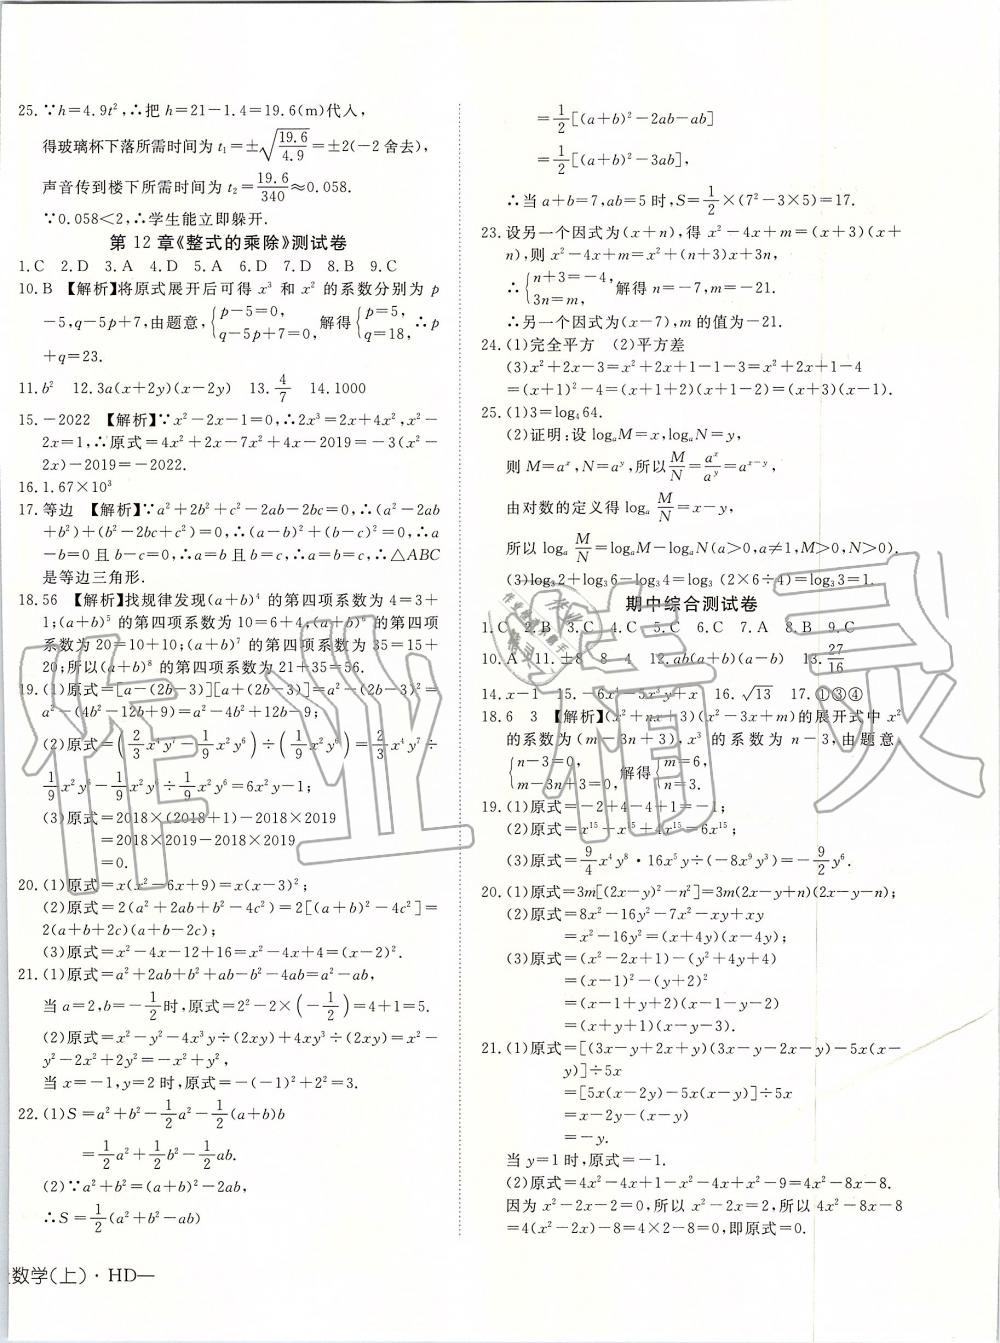 25.∵h=4.9t²,∴把 h=21-1.4=19.6(m)代入,
得玻璃杯下落所需时间为 t₁=±√(19.6/4.9)=±2(-2 舍去),
声音传到楼下所需时间为 t₂=19.6/340≈0.058.
∵0.058<2,∴学生能立即躲开.
第 12 章《整式的乘除》测试卷
1.C 2.D 3.A 4.D 5.A 6.D 7.D 8.B 9.C
10.B 【解析】将原式展开后可得 x³ 和 x² 的系数分别为 p
-5,q-5p+7,由题意,{p-5=0, q-5p+7=0, 解得{p=5, q=18, ∴p
+q=23.
11.b² 12.3a(x+2y)(x-2y) 13.4/7 14.1000
15.-2022 【解析】∵x²-2x-1=0,∴2x³=2x+4x²,x²-
2x=1,∴原式=4x²+2x-7x²+4x-2019=-3(x²-
2x)-2019=-2022.
16.1.67×10³
17.等边 【解析】∵a²+2b²+c²-2ab-2bc=0,∴(a²-2ab
+b²)+(b²-2bc+c²)=0,∴(a-b)²+(b-c)²=0,∴a
-b=0 且 b-c=0,∴a=b 且 b=c,∴a=b=c,∴△ABC
是等边三角形.
18.56 【解析】找规律发现(a+b)⁴ 的第四项系数为 4=3+
1;(a+b)⁵ 的第四项系数为 10=6+4;(a+b)⁶ 的第四项
系数为 20=10+10;(a+b)⁷ 的第四项系数为 35=15+
20;所以(a+b)⁸ 的第四项系数为 21+35=56.
19.(1)原式=[a-(2b-3)][a+(2b-3)]=a²-(2b-3)²=
a²-(4b²-12b+9)=a²-4b²+12b-9;
(2)原式=(2/3x⁴y⁷-1/9x²y⁶)÷(1/9x²y⁶)=2/3x⁴y⁷÷
1/9x²y⁶-1/9x²y⁶÷1/9x²y⁶=6x²y-1;
(3)原式=2018×(2018+1)-2018×2019
=2018×2019-2018×2019
=0.
20.(1)原式=x(x²-6x+9)=x(x-3)²;
(2)原式=2(a²+2ab+b²-4c²)=2[(a+b)²-4c²]=
2(a+b+2c)(a+b-2c);
(3)原式=x²-4x-12+16=x²-4x+4=(x-2)².
21.(1)原式=a²+2ab+b²+ab-b²-4ab=a²-ab,
当 a=2,b=-1/2时,原式=2²-2×(-1/2)=4+1=5.
(2)原式=x²-y²-4x³y÷(2xy)+4xy³÷(2xy)=x²-
y²-2x²+2y²=-x²+y²,
当 x=-1,y=2 时,原式=-(-1)²+2²=3.
22.(1)S=a²+b²-1/2a²-1/2(a+b)b
=1/2a²+1/2b²-1/2ab.
(2)∵a²+b²=(a+b)²-2ab,
∴S=1/2(a²+b²-ab)
数学(上)·HD—
=1/2[(a+b)²-2ab-ab]
=1/2[(a+b)²-3ab],
∴当 a+b=7,ab=5 时,S=1/2×(7²-3×5)=17.
23.设另一个因式为(x+n),得 x²-4x+m=(x+3)(x+
n),则 x²-4x+m=x²+(n+3)x+3n,
∴{n+3=-4, 3n=m, 解得 n=-7,m=-21.
∴另一个因式为(x-7),m 的值为-21.
24.(1)完全平方 (2)平方差
(3)x²+2x-3=x²+2x+1-1-3=x²+2x+1-4
=(x+1)²-4=(x+1+2)(x+1-2)=(x+3)(x-1).
25.(1)3=log₄64.
(2)证明:设 logₐM=x,logₐN=y,
则 M=aˣ,N=aʸ,所以M/N=aˣ/aʸ=aˣ⁻ʸ,
由对数的定义得 logₐ M/N=x-y,
所以 logₐ M/N=logₐM-logₐN(a>0,a≠1,M>0,N>0).
(3)log₃2+log₃6-log₃4=log₃(2×6÷4)=log₃3=1.
期中综合测试卷
1.C 2.B 3.C 4.C 5.C 6.C 7.A 8.B 9.C
10.A 11.±8 8 -4 12.ab(a+b)(a-b) 13.27/16
14.x-1 15.-6x³-5x²y+x 16.√13 17.①③④
18.6 3 【解析】(x²+nx+3)(x²-3x+m)的展开式中 x²
的系数为(m-3n+3),x³ 的系数为 n-3,由题意
{n-3=0, m-3n+3=0, 解得{m=6, n=3.
19.(1)原式=-2+4-4+1=-1;
(2)原式=x¹⁵+x¹⁵+4x¹⁵=6x¹⁵;
(3)原式=9/4x⁴y⁸·16x⁵y÷(-8x⁹y³)=-9/2y⁶.
20.(1)原式=3m[(2x-y)²-n²]=3m(2x-y+n)(2x-y-n);
(2)原式=8x²-16y²-7x²-xy+xy
=x²-16y²=(x+4y)(x-4y);
(3)原式=(x²-2x+1)-(y²+4y+4)
=(x-1)²-(y+2)²
=(x-1+y+2)(x-1-y-2)
=(x+y+1)(x-y-3).
21.(1)原式=[(3x-y+2x+y)(3x-y-2x-y)-5x(x-
y)]÷5x
=[5x(x-2y)-5x(x-y)]÷5x
=x-2y-(x-y)
=-y.
当 y=1 时,原式=-1.
(2)原式=4x²-4x+1-x²-4x+x²-9=4x²-8x-8.
因为 x²-2x-2=0,所以 x²-2x=2,所以 4x²-8x-8
=4(x²-2x)-8=4×2-8=0,即原式=0.
作业精灵